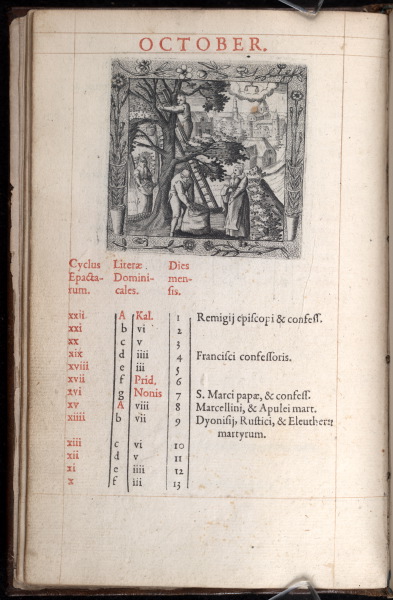 OCTOBER.
Cyclus Literæ. Dies
Epacta- Domini- men-
rum. cales. sis.
xxii A Kal. 1 Remigij episcopi & confeſſ.
xxi b vi 2
xx c v 3
xix d iiii 4 Francisci confeſſoris.
xviii e iii 5
xvii f Prid. 6
xvi g Nonis 7 S. Marci papæ, & confeſſ.
xv A viii 8 Marcellini, & Apulei mart.
xiiii b vii 9 Dyonisij, Rustici, & Eleutherij
martyrum.
xiii c vi 10
xii d v 11
xi e iiii 12
x f iii 13